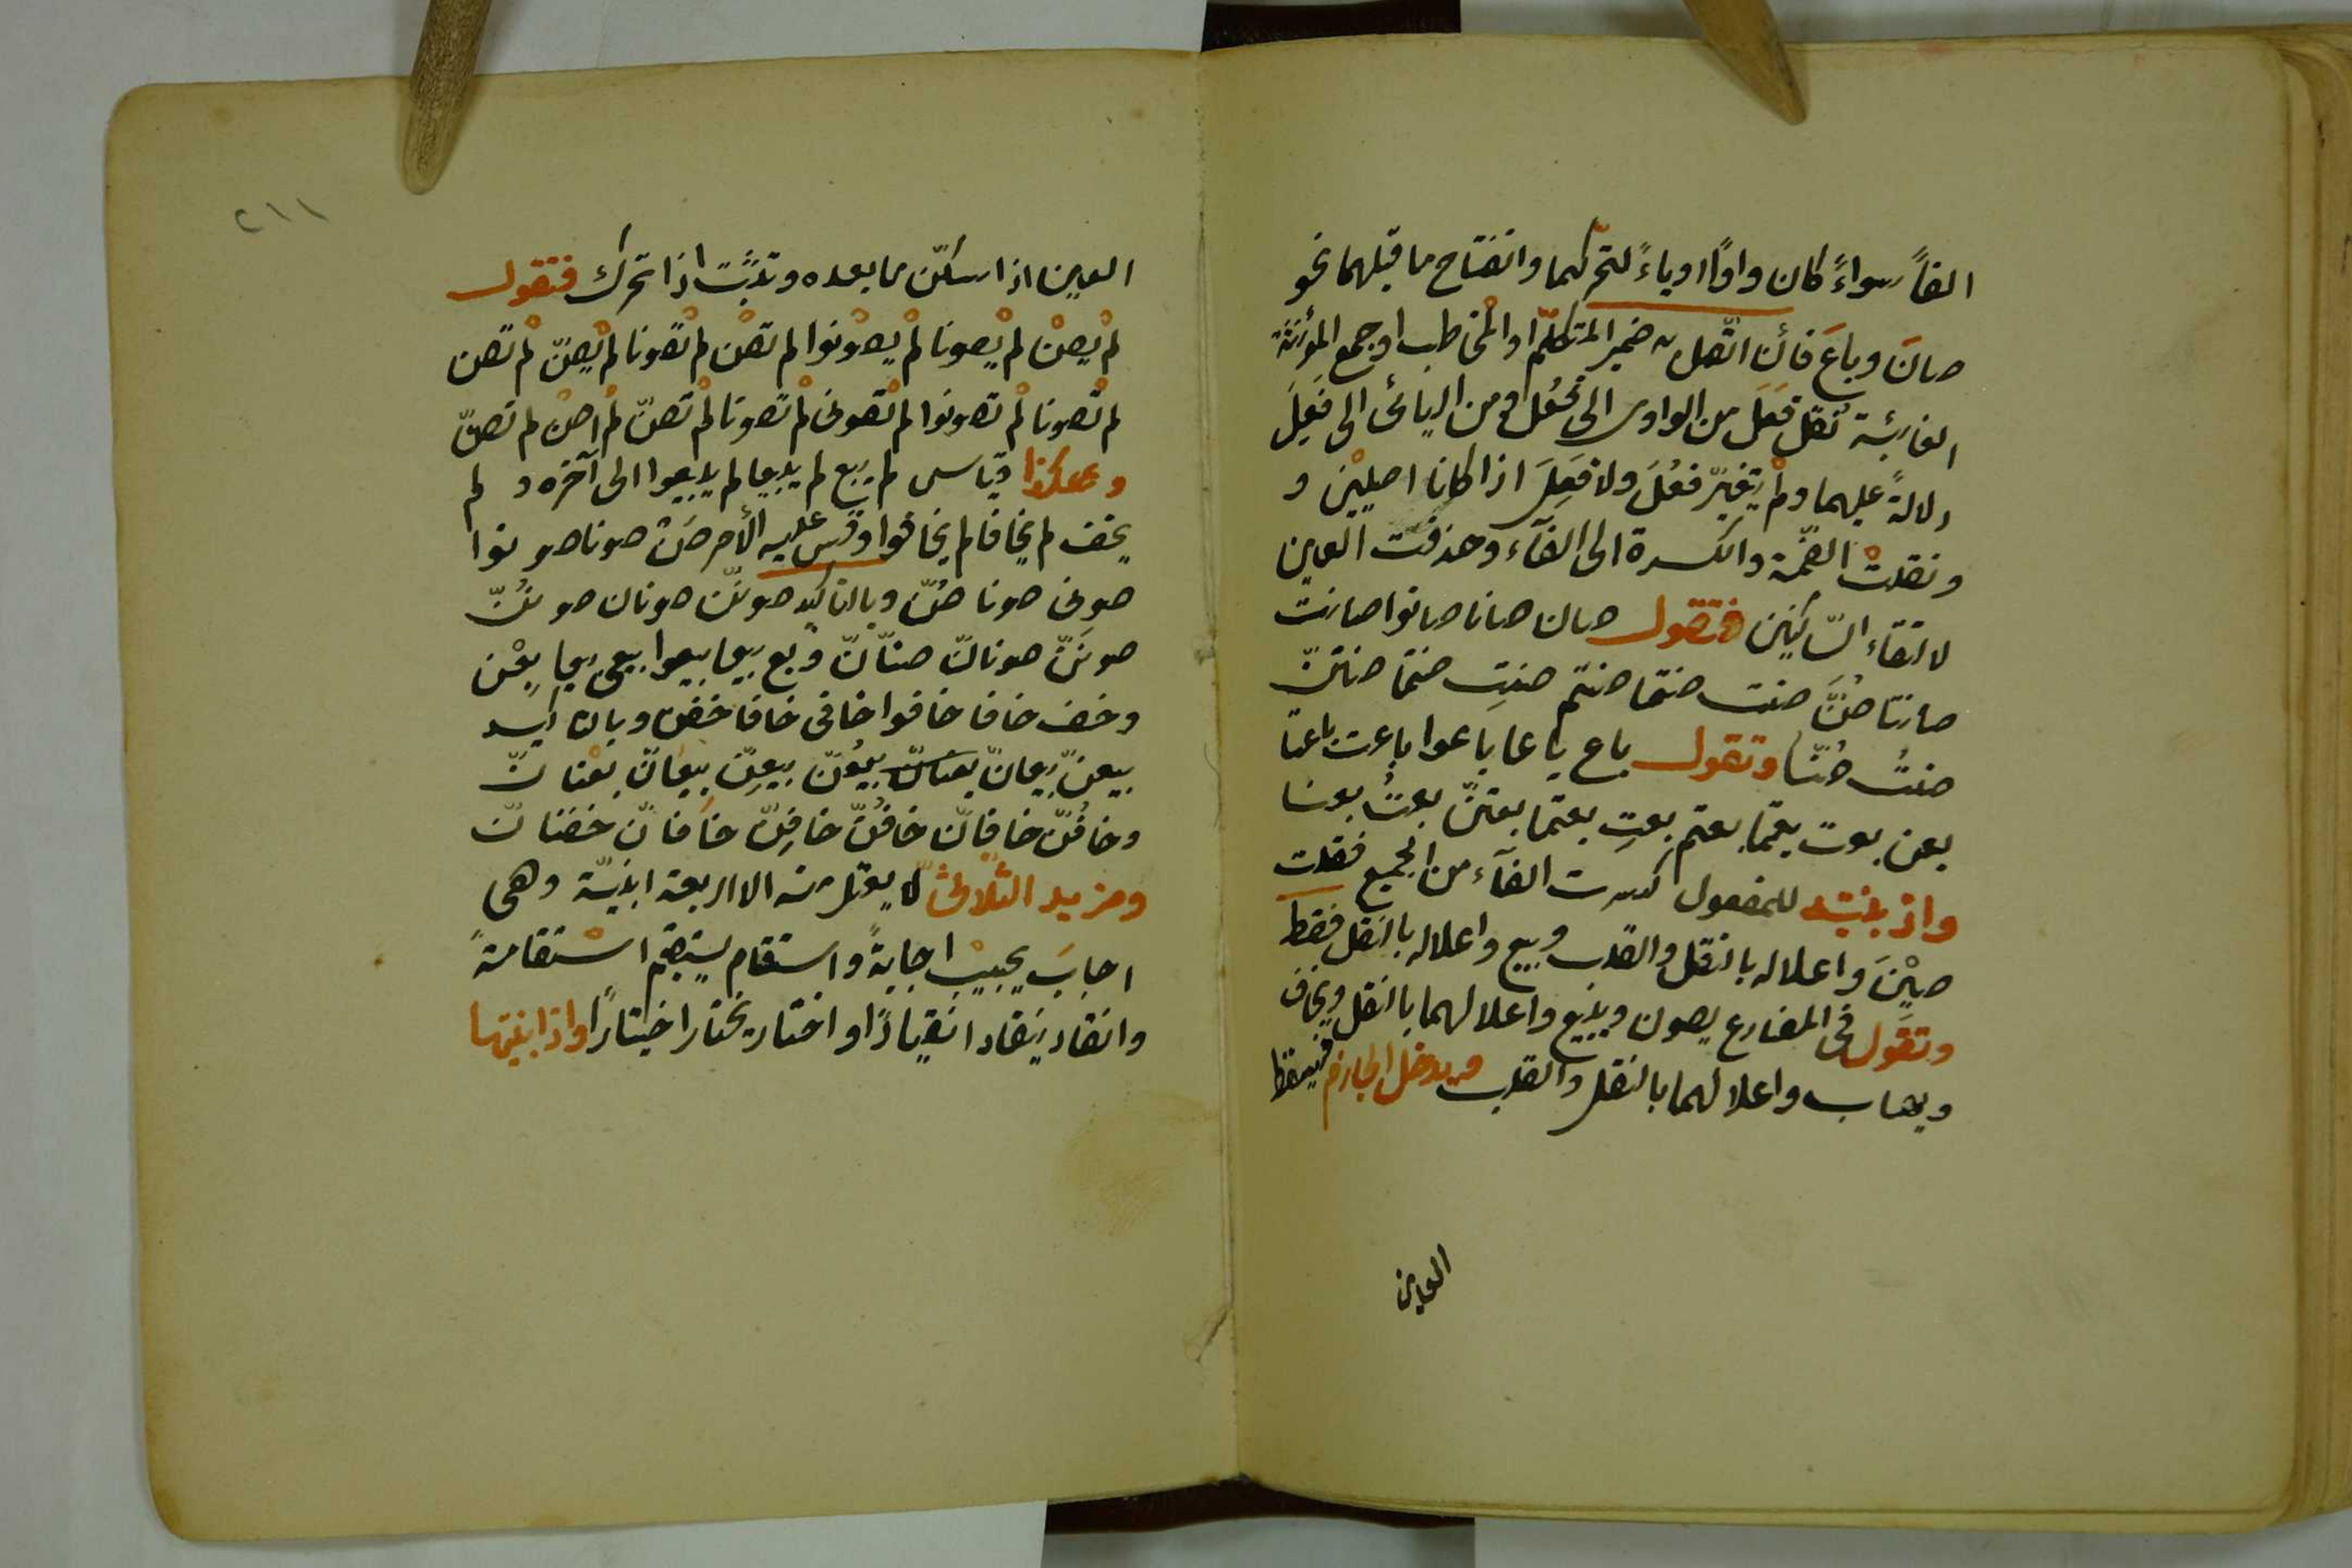 الفاً سواءً كان واوًا او ياءً لتحرّكهما وانفتاح ما قبلهما نحو
صانَ وباعَ فأن اتّصل به ضمير المتكلّم او المخاطب او جمع المؤنثة
الغائبة نُقل فَعَلَ من الواوى الى فَعُلَ ومن اليائى الى فَعِلَ
دلالةً عليهما ولم يتغيّر فعُلَ ولا فَعِلَ اذا كانا اصليّين و
ونقلت الضمّة والكسرة الى الفآء وحذفت العين
لالتقاء السّاكنين فتقول صان صانا صانوا صانت
صانتا صُنَّ صنت صنتما صنتم صنتِ صنتما صنتنّ
صنتُ صُنّا وتقول باع باعا باعوا باعت باعتا
بعن بعت بعتما بعتم بعتِ بعتما بعتنّ بعتُ بعنا
واذ بنيته للمفعول كسرت الفآء من الجميع فقلت
صِيْنَ واعلاله بالنقل والقلب وبيع واعلاله بالنقل فقط
وتقول فى المضارع يصون ويبيع واعلالهما بالنقل ويخاف
ويهاب واعلالهما بالنقل والقلب ويدخل الجازم فيسقط
العين
٢١١
العين اذا سكّن ما بعده وتثبت اذا تحرك فتقول
لم يصن لم يصونا لم يصونوا لم تصن لم تصونا لم يصنّ لم تصن
لم تصونا لم تصونوا لم تصونى لم تصونا لم تصنّ لم اصن لم نصنّ
وهكذا قياس لم يبع لم يبيعا لم يبيعوا الى آخره و لم
يخف لم يخافا لم يخافوا وقس عليه الأمر صُن صونا صونوا
صونى صونا صُنّ وبالتاكيد صوننّ صونان صونُنّ
صونِنّ صونانّ صنّانّ وبع بيعا بيعوا بيعى بيعا بِعْن
وخف خافا خافوا خافى خافا خفن وبالتاكيد
بيعنّ بيعانّ بعنانّ بيعُنّ بيعِنّ بيعانّ بعْنانّ
وخافَنّ خافانّ خافُنّ خافِنّ خافانّ خفنانّ
ومزيد الثلاثىّ لا يعتلّ منه الا اربعة ابنيّة وهى
اجابَ يجيب اجابةً واستقام يستقيم استقامةً
وانقاد ينقاد انقيادًا واختار يختار اختيارًا واذا بنيتها